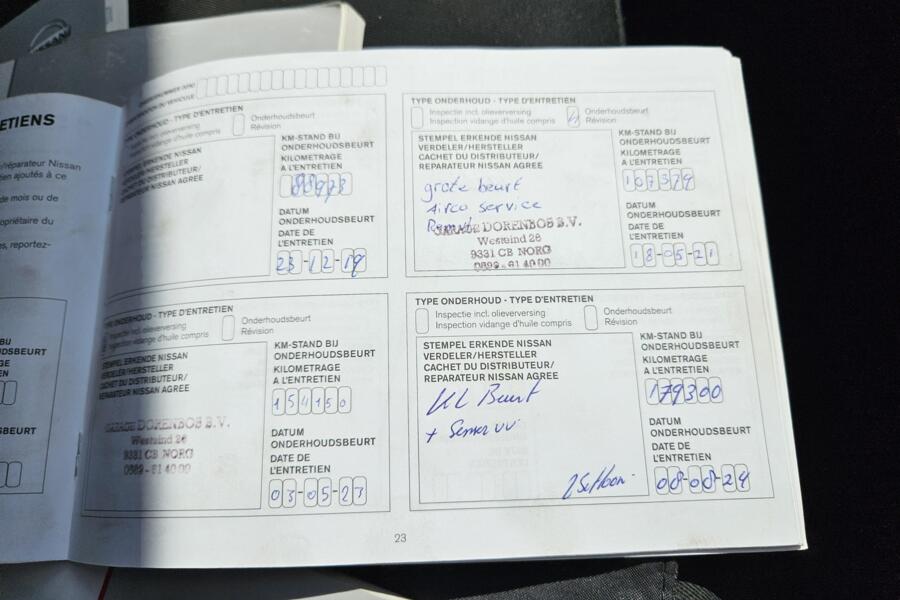 NISSAN
ETIENS
/réparateur Nissan
ien ajoutés à ce
de mois ou de
opriétaire du
s, reportez-
BIJ
DSBEURT
GE
EN
SBEURT
TYPE ONDERHOUD - TYPE D'ENTRETIEN
Inspectie incl. olieverversing
Inspection vidange d'huile compris
Onderhoudsbeurt
Révision
STEMPEL ERKENDE NISSAN
VERDELER/HERSTELLER
CACHET DU DISTRIBUTEUR/
REPARATEUR NISSAN AGREE
KM-STAND BIJ
ONDERHOUDSBEURT
KILOMETRAGE
A L'ENTRETIEN
88973
DATUM
ONDERHOUDSBEURT
DATE DE
L'ENTRETIEN
23-12-19
TYPE ONDERHOUD - TYPE D'ENTRETIEN
Inspectie incl. olieverversing
Inspection vidange d'huile compris
Onderhoudsbeurt
Révision
STEMPEL ERKENDE NISSAN
VERDELER/HERSTELLER
CACHET DU DISTRIBUTEUR/
REPARATEUR NISSAN AGREE
grote beurt
Airco service
GARAGE DORENBOS B.V.
Westeind 26
9331 CB NORG
KM-STAND BIJ
ONDERHOUDSBEURT
KILOMETRAGE
A L'ENTRETIEN
107379
DATUM
ONDERHOUDSBEURT
DATE DE
L'ENTRETIEN
18-05-21
TYPE ONDERHOUD - TYPE D'ENTRETIEN
Inspectie incl. olieverversing
Inspection vidange d'huile compris
Onderhoudsbeurt
Révision
STEMPEL ERKENDE NISSAN
VERDELER/HERSTELLER
CACHET DU DISTRIBUTEUR/
REPARATEUR NISSAN AGREE
GARAGE DORENBOS B.V.
Westeind 26
9331 CB NORG
KM-STAND BIJ
ONDERHOUDSBEURT
KILOMETRAGE
A L'ENTRETIEN
154150
DATUM
ONDERHOUDSBEURT
DATE DE
L'ENTRETIEN
03-05-23
TYPE ONDERHOUD - TYPE D'ENTRETIEN
Inspectie incl. olieverversing
Inspection vidange d'huile compris
Onderhoudsbeurt
Révision
STEMPEL ERKENDE NISSAN
VERDELER/HERSTELLER
CACHET DU DISTRIBUTEUR/
REPARATEUR NISSAN AGREE
Beurt
KM-STAND BIJ
ONDERHOUDSBEURT
KILOMETRAGE
A L'ENTRETIEN
179300
DATUM
ONDERHOUDSBEURT
DATE DE
L'ENTRETIEN
08-08-24
23